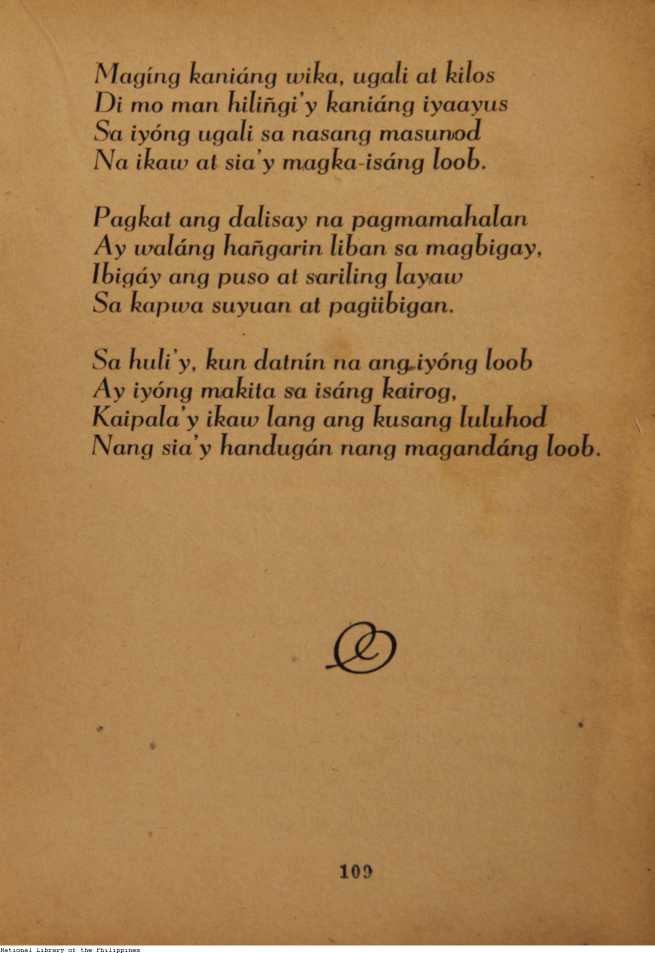 Magíng kaniáng wika, ugali at kilos
Di mo man hiliñgi'y kaniáng iyaayus
Sa iyóng ugali sa nasang masunod
Na ikaw at sia'y magka-isáng loob.
Pagkat ang dalisay na pagmamahalan
Ay waláng hañgarin liban sa magbigay,
Ibigáy ang puso at sariling layaw
Sa kapwa suyuan at pagiibigan.
Sa huli'y, kun datnín na ang iyóng loob
Ay iyóng makita sa isáng kairog,
Kaipala'y ikaw lang ang kusang luluhod
Nang sia'y handugán nang magandáng loob.
109
National Library of the Philippines